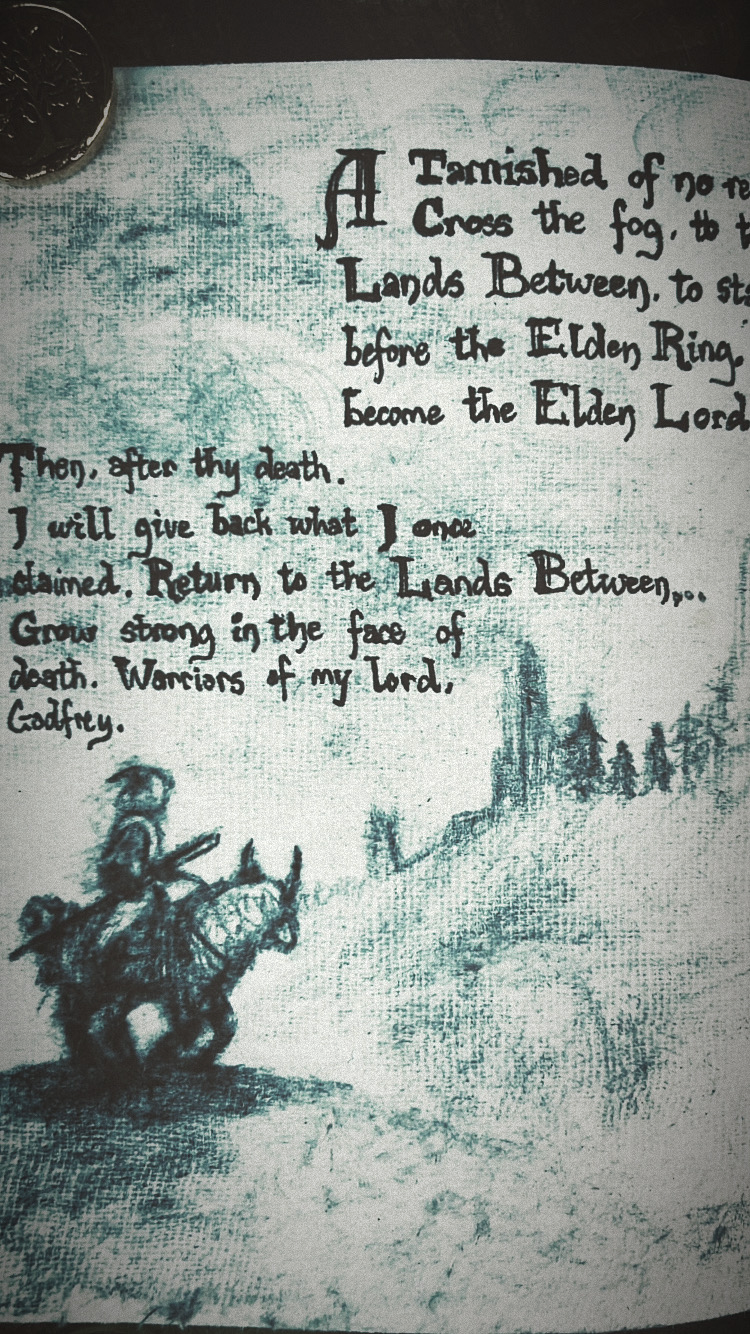 A Tarnished of no
Cross the fog, to
Lands Between, to
before the Elden Ring,
become the Elden Lord
Then, after thy death.
I will give back what I once
claimed. Return to the Lands Between,...
Grow strong in the face of
death. Warriors of my lord,
Godfrey.